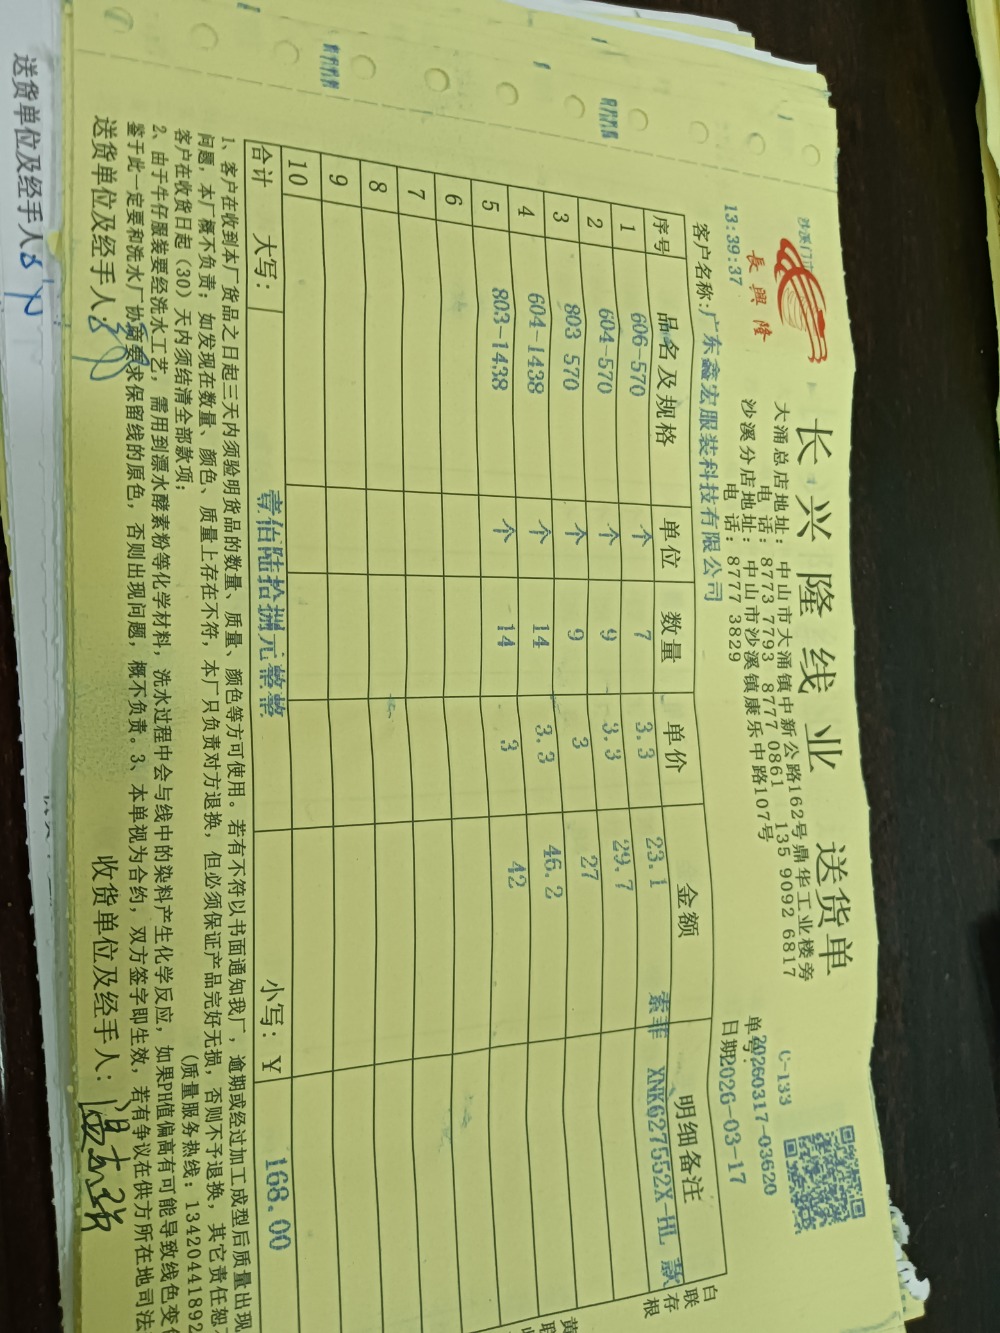 長興隆
长兴隆线业 送货单
大涌总店地址：中山市大涌镇中新公路162号鼎华工业楼旁
电 话：8773 7793 8777 0861 135 9092 6817
沙溪分店地址：中山市沙溪镇康乐中路107号
电 话：8777 3829
C-133
单号：20260317-03620
日期2026-03-17
13:39:37
客户名称：广东鑫宏服装科技有限公司
序号 品名及规格 单位 数量 单价 金额 明细备注
1 606-570 个 7 3.3 23.1 索菲 XNK627552X-HL 款
2 604-570 个 9 3.3 29.7
3 803 570 个 9 3 27
4 604-1438 个 14 3.3 46.2
5 803-1438 个 14 3 42
6
7
8
9
10
合计 大写： 壹佰陆拾捌元整整 小写：￥ 168.00
白联存根
黄联
1、客户在收到本厂货品之日起三天内须验明货品的数量、质量、颜色等方可使用。若有不符以书面通知我厂，逾期或经过加工成型后质量出现
问题，本厂概不负责；如发现在数量、颜色、质量上存在不符，本厂只负责对方退换，但必须保证产品完好无损，否则不予退换，其它责任恕
客户在收货日起（30）天内须结清全部款项； （质量服务热线：13420441892
2、由于牛仔服装要经洗水工艺，需用到漂水酵素粉等化学材料，洗水过程中会与线中的染料产生化学反应，如果PH值偏高有可能导致线色变
鉴于此一定要和洗水厂协商要求保留线的原色，否则出现问题，概不负责。3、本单视为合约，双方签字即生效，若有争议在供方所在地司法
送货单位及经手人： 收货单位及经手人：
送货单位及经手人